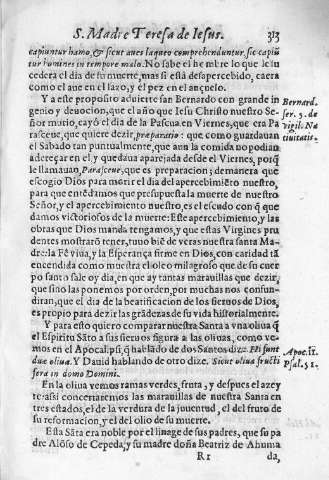 S. Madre Teresa de Iesus. 313
capiuntur hamo, & sicut aues laqueo comprehenduntur, sic capiũ
tur homines in tempore malo. No sabe el hombre lo que le su
cedera el dia de su muerte, mas si està desapercebido, caera
como el aue en el lazo, y el pez en el ançuelo.
Y a este proposito aduierte san Bernardo con grande in
genio y deuocion, que el año que Iesu Christo nuestro Se-
ñor murio, cayò el dia de la Pascua en Viernes, que era Pa
rasceue, que quiere dezir, præparatio: que como guardauan
el Sabado tan puntualmente, que aun la comida no podian
adereçar en el, y quedaua aparejada desde el Viernes, porq̃
le llamauan, Parasceue, que es preparacion; demanera que
escogio Dios para morir el dia del apercebimiẽto nuestro,
para que entẽdamos que presupuesta la muerte de nuestro
Señor, y el apercebimiento nuestro, es el escudo con q̃ que
damos victoriosos de la muerte: Este apercebimiento, y las
obras que Dios manda tengamos, y que estas Virgines pru
dentes mostrarõ tener, tuuo biẽ de veras nuestra santa Ma
dre: la Fè viua, y la Esperança firme en Dios, con caridad tã
encendida como muestra el olio milagroso que de su cuer
po santo sale oy dia, en que ay tantas marauillas que dezir,
que sino las ponemos por orden, por muchas nos confun-
diran, que el dia de la beatificacion de los sieruos de Dios,
es propio para dezir las grãdezas de su vida historialmente.
Y para esto quiero comparar nuestra Santa a vna oliua, q̃
el Espiritu Sãto a sus sieruos figura a las oliuas, como ve-
mos en el Apocalipsi, q̃ hablando de dos Santos dize. Hi sunt
duæ oliuæ. Y Dauid hablando de otro dize. Sicut oliua fructi
fera in domo Domini.
En la oliua vemos ramas verdes, fruta, y despues el azey
te: assi concertaremos las marauillas de nuestra Santa en
tres estados, el de la verdura de la juuentud, el del fruto de
su reformacion, y el del olio de su muerte.
Esta Sãta era noble por el linage de sus padres, que su pa
dre Alõso de Cepeda, y su madre doña Beatriz de Ahuma
Rr da,
Bernard.
ser. 3. de
vigil. Na
tiuitatis.
Apoc. 11.
Psal. 51.